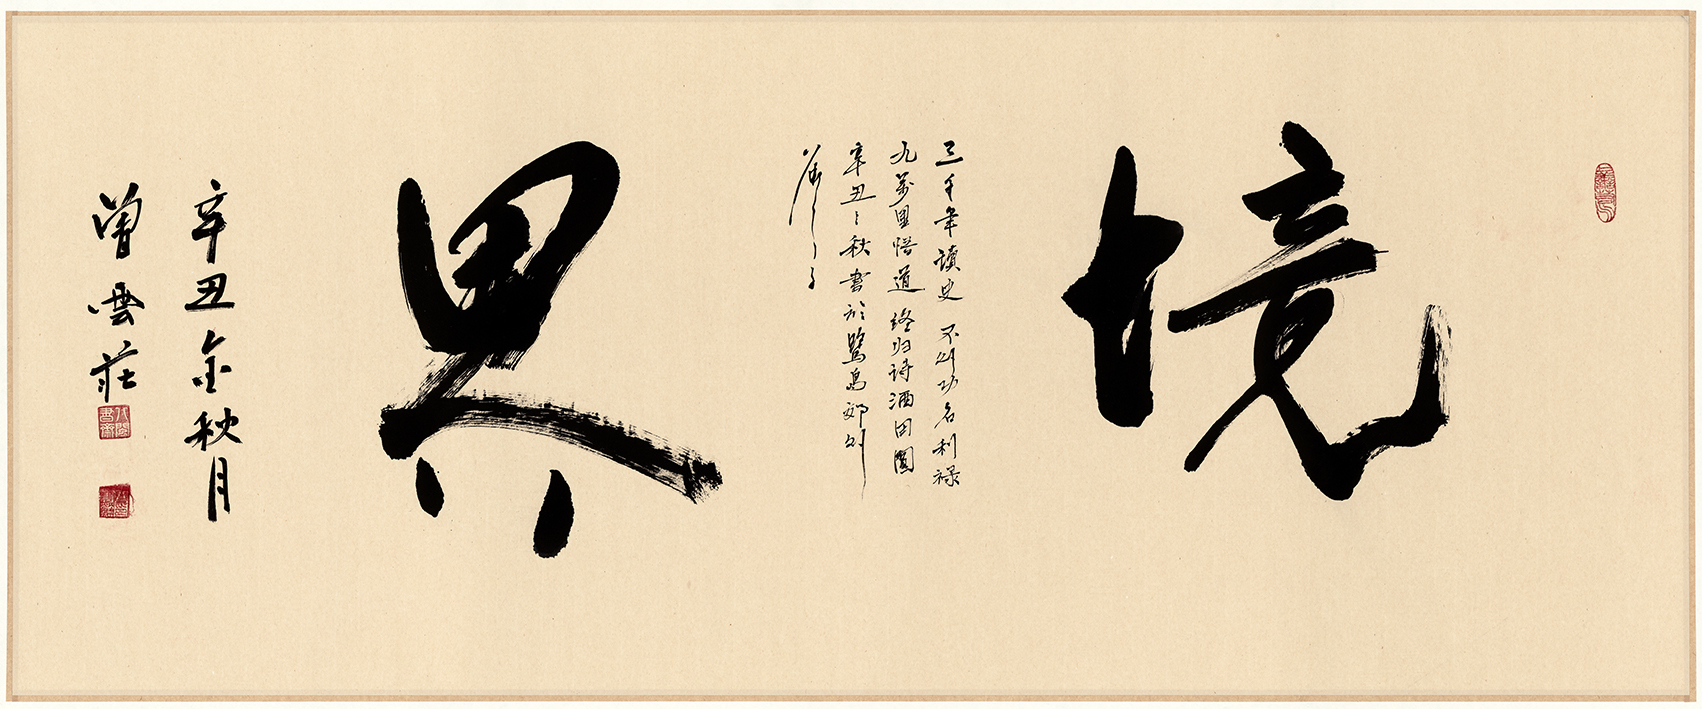 境
三千年讀史 不外功名利禄
九萬里悟道 终归诗酒田園
辛丑之秋書於鷺島郊外
界
辛丑金秋月
曾雲莊